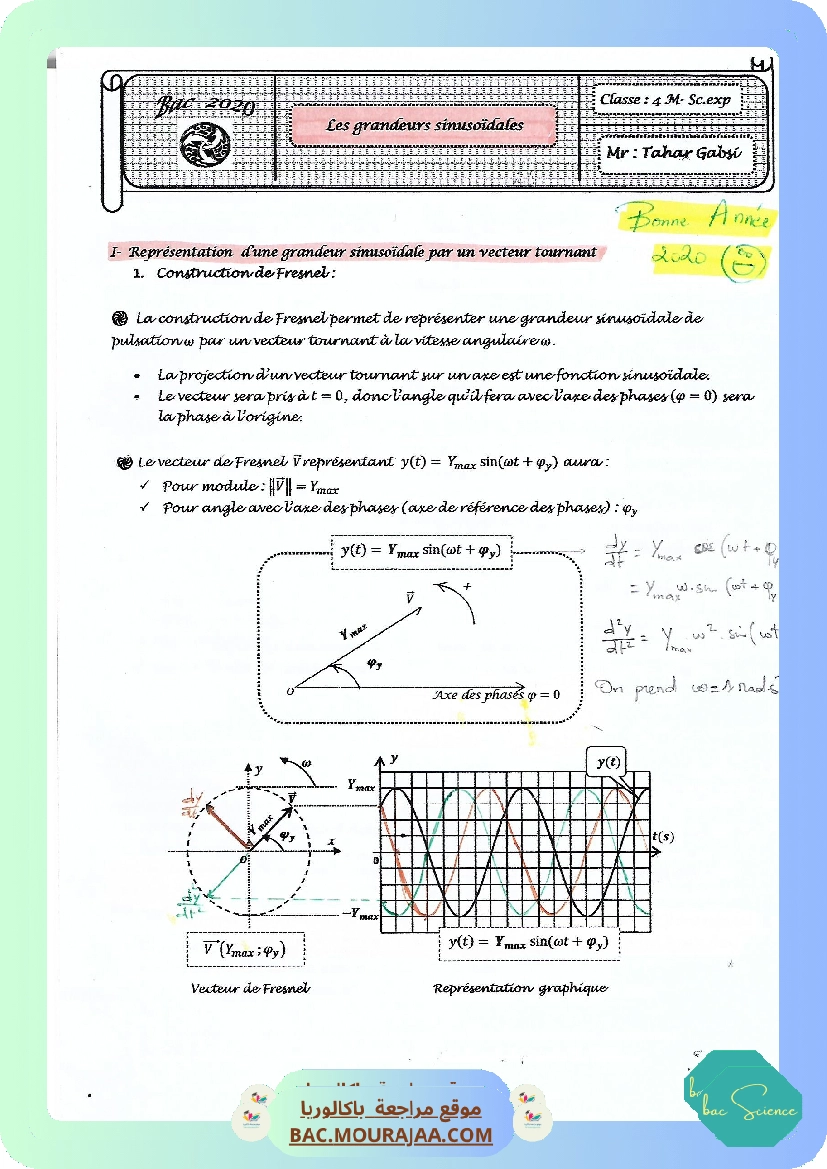 Bac 2020
Les grandeurs sinusoïdales
Classe : 4 M- Sc.exp
Mr : Tahar Gabsi
Bonne Année
2020
I- Représentation d'une grandeur sinusoïdale par un vecteur tournant
1. Construction de Fresnel :
La construction de Fresnel permet de représenter une grandeur sinusoïdale de
pulsation ω par un vecteur tournant à la vitesse angulaire ω.
• La projection d'un vecteur tournant sur un axe est une fonction sinusoïdale.
• Le vecteur sera pris à t = 0, donc l'angle qu'il fera avec l'axe des phases (φ = 0) sera
la phase à l'origine.
Le vecteur de Fresnel V⃗ représentant y(t) = Ymax sin(ωt + φy) aura :
✓ Pour module : ‖V⃗‖ = Ymax
✓ Pour angle avec l'axe des phases (axe de référence des phases) : φy
y(t) = Ymax sin(ωt + φy)
dy/dt = Ymax cos (ωt + φy
= Ymax ω. sin (ωt + φy
d²y/dt² = Ymax ω². sin (ωt
On prend ω = 1 rad s
+
V⃗
Ymax
φy
O
Axe des phases φ = 0
y
ω
Ymax
dy/dt
V⃗
Ymax
φy
x
O
d²y/dt²
-Ymax
y
y(t)
t(s)
0
V⃗ (Ymax ; φy)
y(t) = Ymax sin(ωt + φy)
Vecteur de Fresnel
Représentation graphique
موقع مراجعة باكالوريا
BAC.MOURAJAA.COM
bac Science